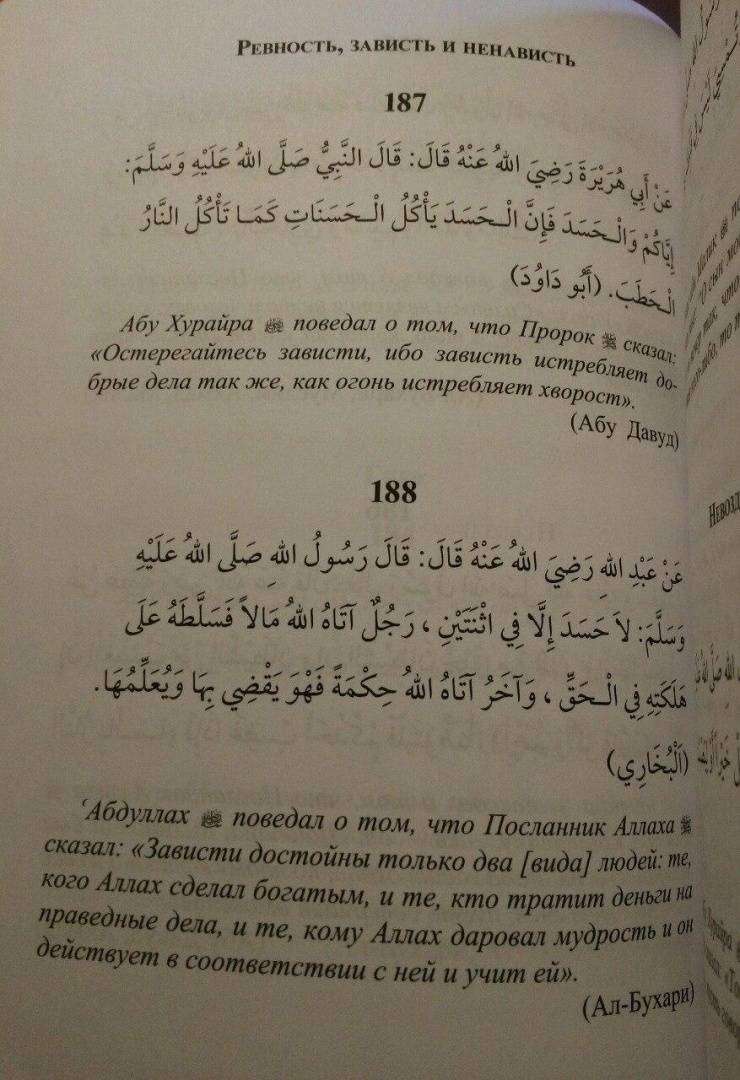 Ревность, зависть и ненависть
187
عَنْ أَبِي هُرَيْرَةَ رَضِيَ اللهُ عَنْهُ قَالَ: قَالَ النَّبِيُّ صَلَّى اللهُ عَلَيْهِ وَسَلَّمَ:
إِيَّاكُمْ وَالْـحَسَدَ فَإِنَّ الْـحَسَدَ يَأْكُلُ الْـحَسَنَاتِ كَمَـا تَأْكُلُ النَّارُ
الْـحَطَبَ. (أَبُو دَاوُدَ)
Абу Хурайра ﷺ поведал о том, что Пророк ﷺ сказал:
«Остерегайтесь зависти, ибо зависть истребляет до-
брые дела так же, как огонь истребляет хворост».
(Абу Давуд)
188
عَنْ عَبْدِ اللهِ رَضِيَ اللهُ عَنْهُ قَالَ: قَالَ رَسُولُ اللهِ صَلَّى اللهُ عَلَيْهِ
وَسَلَّمَ: لاَ حَسَدَ إِلَّا فِي اثْنَتَيْنِ ، رَجُلٌ آتَاهُ اللهُ مَالاً فَسَلَّطَهُ عَلَى
هَلَكَتِهِ فِي الْـحَقِّ ، وَآخَرُ آتَاهُ اللهُ حِكْمَةً فَهْوَ يَقْضِي بِهَا وَيُعَلِّمُهَا.
(اَلْبُخَارِي)
‘Абдуллах ﷺ поведал о том, что Посланник Аллаха ﷺ
сказал: «Зависти достойны только два [вида] людей: те,
кого Аллах сделал богатым, и те, кто тратит деньги на
праведные дела, и те, кому Аллах даровал мудрость и он
действует в соответствии с ней и учит ей».
(Ал-Бухари)